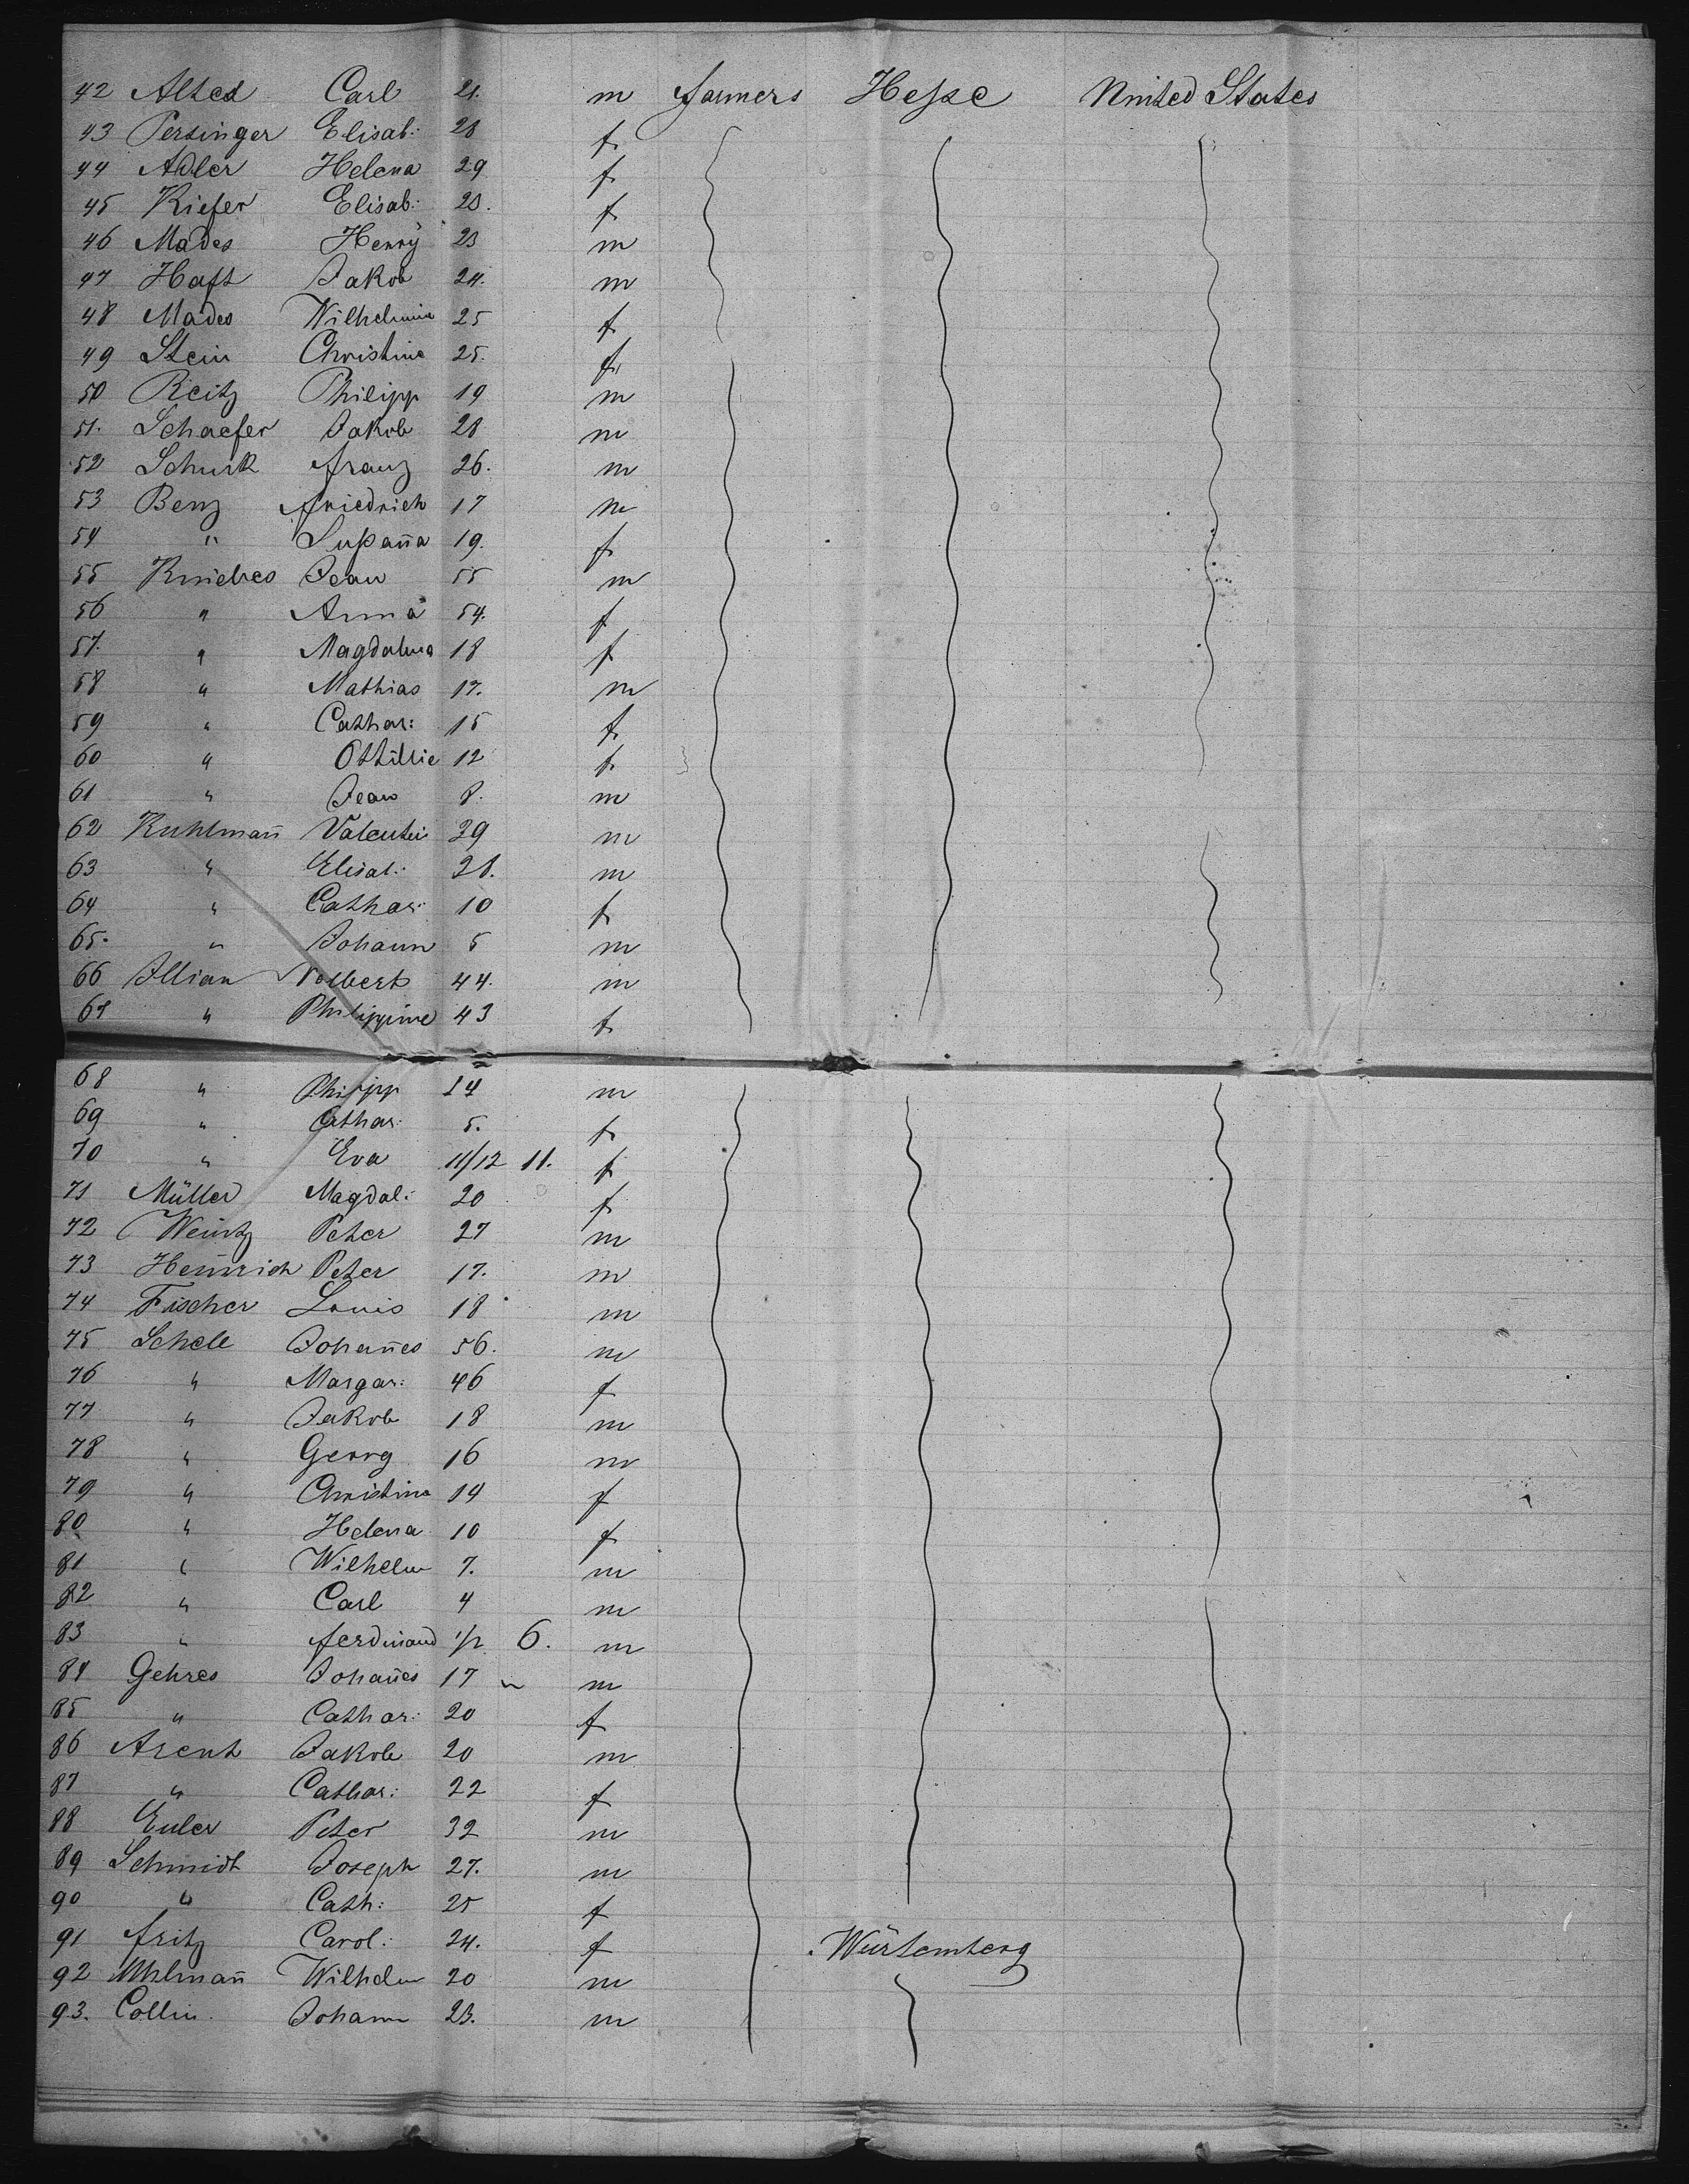 42 Alted Carl 21. m farmers Heſse United States
43 Persinger Elisab: 28 f
44 Adler Helena 29 f
45 Kiefer Elisab: 20. f
46 Mades Henry 23 m
47 Haft Jakob 24. m
48 Mades Wilhelmina 25 f
49 Stein Christine 25. f
50 Reitz Philipp 19 m
51. Schaefer Jakob 28 m
52 Schurk franz 26. m
53 Benz friedrich 17 m
54 " Susan̄a 19. f
55 Jean 55 m
56 " Anna 54. f
57. " Magdalena 18 f
58 " Mathias 17. m
59 " Cathar: 15 f
60 " Ottillie 12 f
61 " Jean 8. m
62 Kuhlman̄ Valentin 39 m
63 " Elisab: 28. m
64 " Cathar: 10 f
65. " Johann 5 m
66 Illian Volbert 44. m
67 " Philippine 43 f
68 " Philipp 14 m
69 " Cathar: 5. f
70 " Eva 11/12 11. f
71 Müller Magdal: 20 f
72 Weintz Peter 27 m
73 Heinrich Peter 17. m
74 Fischer Louis 18 m
75 Schell Johan̄es 56. m
76 " Margar: 46 f
77 " Jakob 18 m
78 " Georg 16 m
79 " Christina 14 f
80 " Helena 10 f
81 " Wilhelm 7. m
82 " Carl 4 m
83 " ferdinand 1/2 6. m
84 Gehres Johan̄es 17 m
85 " Cathar: 20 f
86 Arent Jakob 20 m
87 " Cathar: 22 f
88 Euler Peter 32 m
89 Schmidt Joseph 27. m
90 " Cath: 25 f
91 fritz Carol: 24. f Würtemberg
92 Uhlman̄ Wilhelm 20 m
93. Collin Johann 23. m